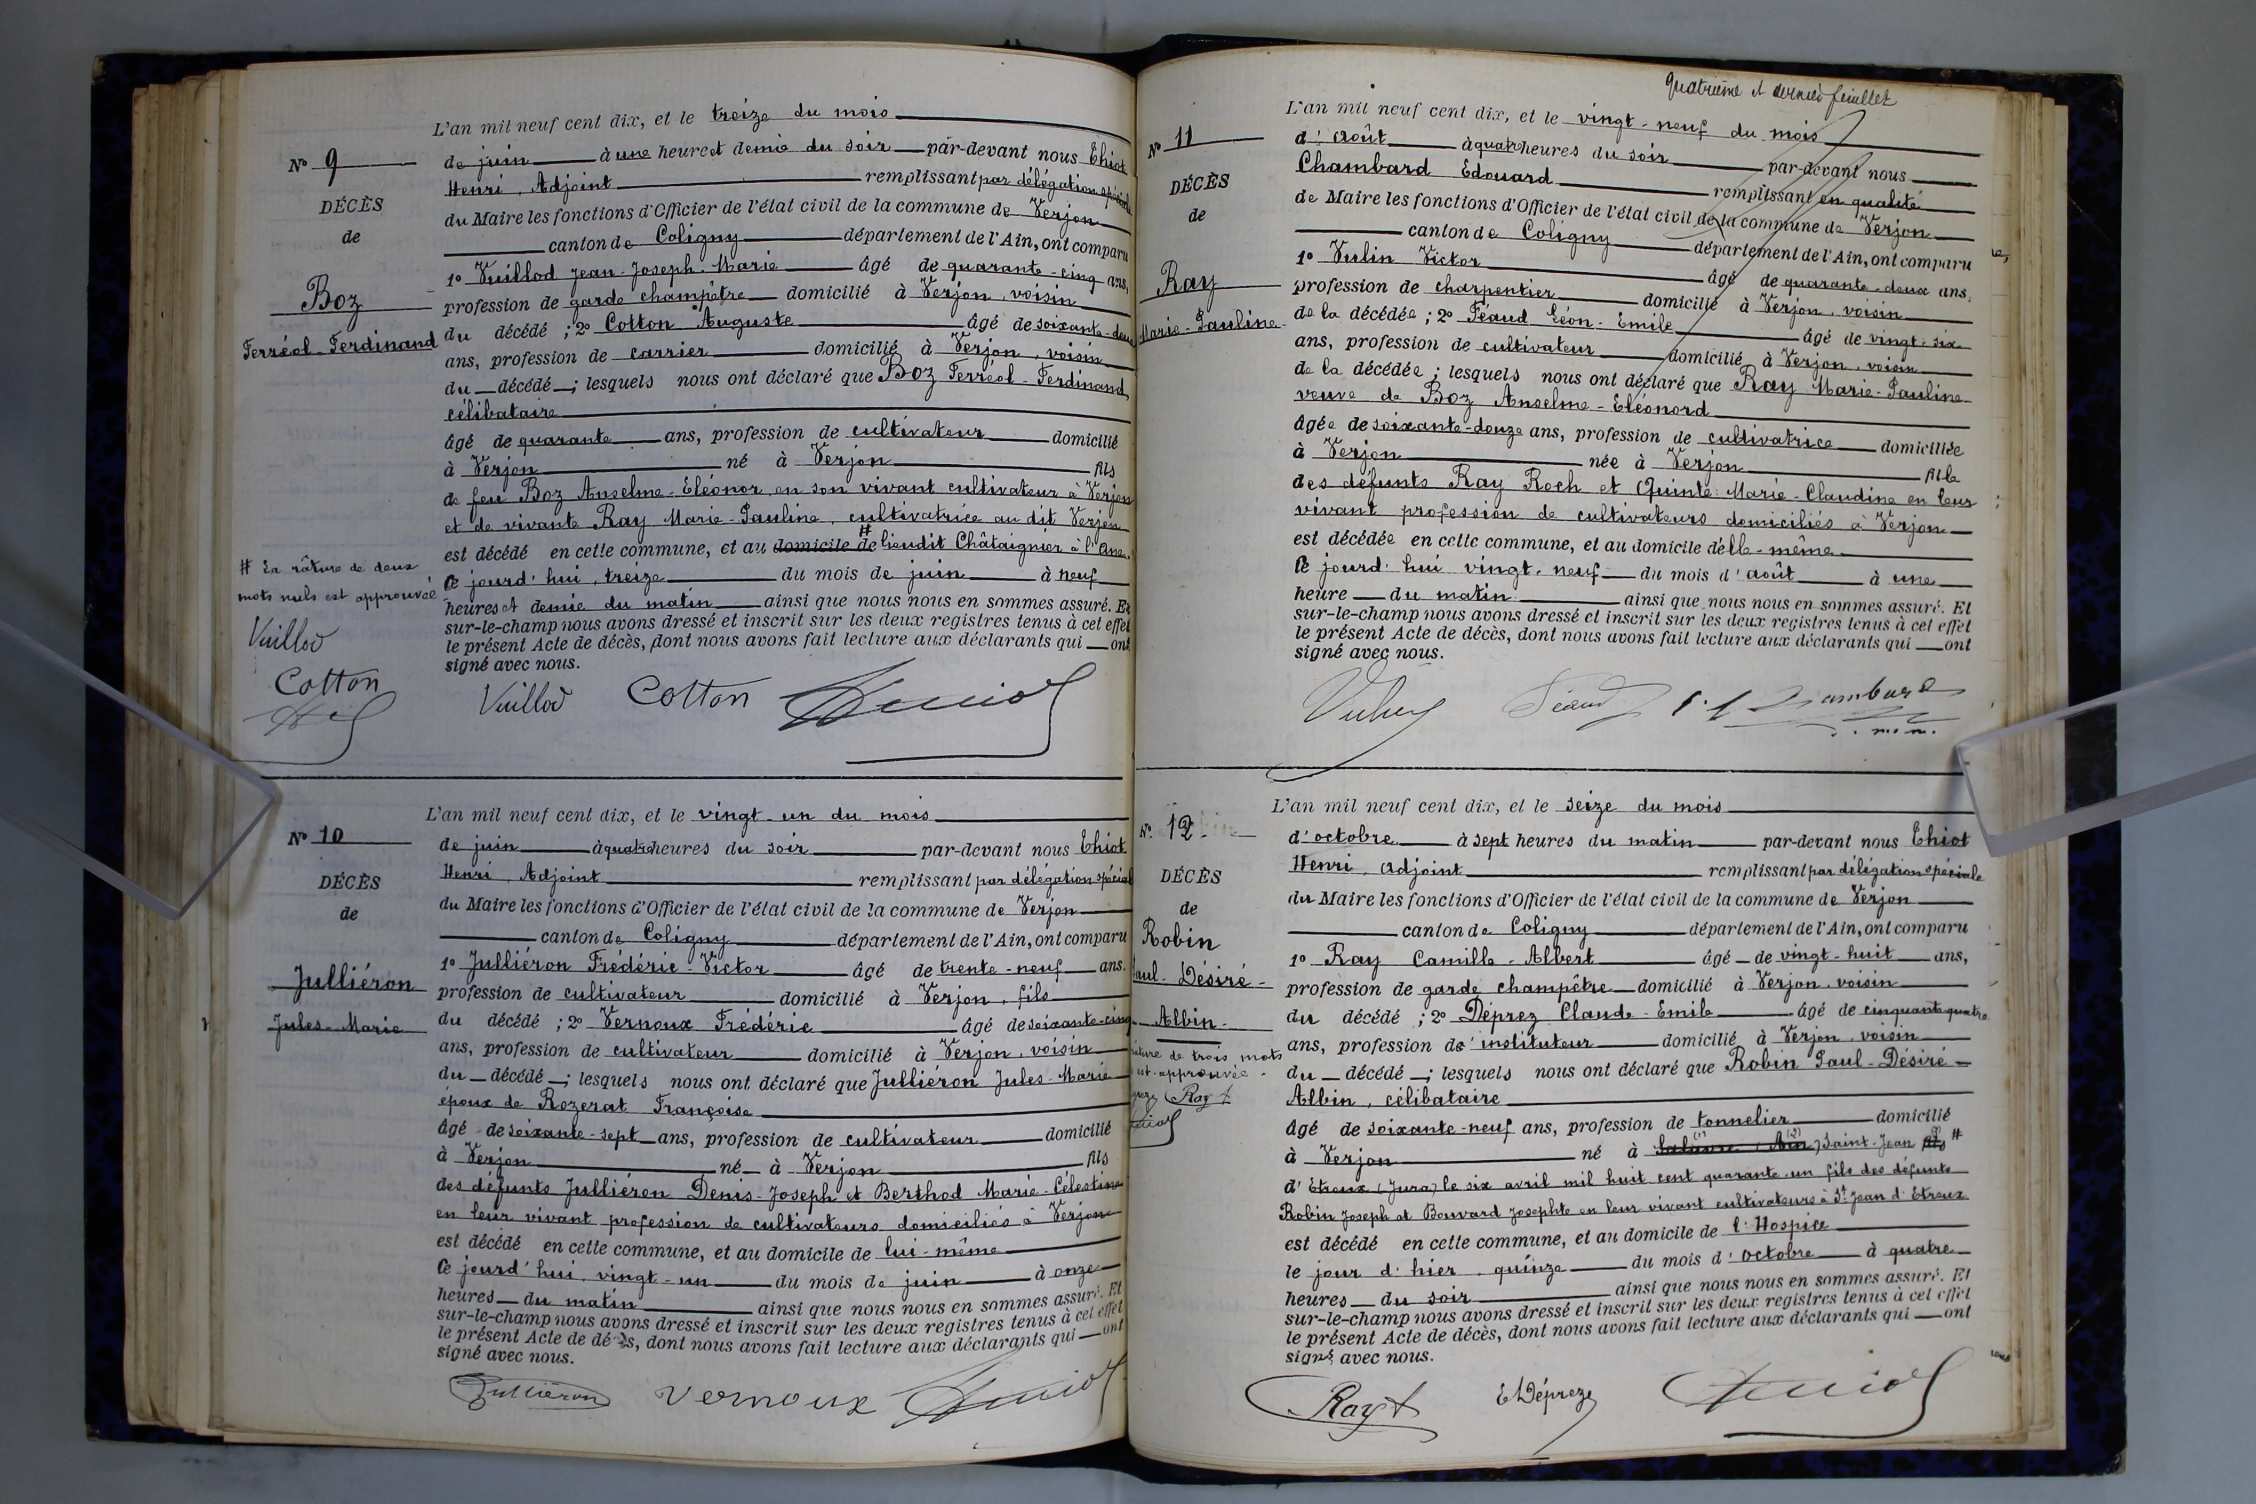 L'an mil neuf cent dix, et le treize du mois
No 9
de juin à une heure et demie du soir par-devant nous Thiot
Henri, Adjoint remplissant par délégation spéciale
DÉCÈS
du Maire les fonctions d'Officier de l'état civil de la commune de Verjon
de
canton de Coligny département de l'Ain, ont comparu
1o Vuillod Jean-Joseph-Marie âgé de quarante-cinq ans,
Boz
profession de garde champêtre domicilié à Verjon, voisin
Ferréol-Ferdinand
du décédé ; 2o Cotton Auguste âgé de soixante-deux
ans, profession de carrier domicilié à Verjon, voisin
du décédé ; lesquels nous ont déclaré que Boz Ferréol-Ferdinand,
célibataire
âgé de quarante ans, profession de cultivateur domicilié
à Verjon né à Verjon fils
de feu Boz Anselme-Eléonor, en son vivant cultivateur à Verjon
et de vivante Ray Marie-Pauline, cultivatrice au dit Verjon
est décédé en cette commune, et au domicile de # lieudit Châtaignier à l'Ane
# La râture de deux
mots nuls est approuvée
Vuillod
Cotton
ce jourd'hui, treize du mois de juin à neuf
heures et demie du matin ainsi que nous nous en sommes assuré. Et
sur-le-champ nous avons dressé et inscrit sur les deux registres tenus à cet effet
le présent Acte de décès, dont nous avons fait lecture aux déclarants qui ont
signé avec nous.
Vuillod Cotton
L'an mil neuf cent dix, et le vingt-un du mois
No 10
de juin à quatre heures du soir par-devant nous Thiot
Henri, Adjoint remplissant par délégation spéciale
DÉCÈS
du Maire les fonctions d'Officier de l'état civil de la commune de Verjon
de
canton de Coligny département de l'Ain, ont comparu
1o Julliéron Frédéric-Victor âgé de trente-neuf ans.
Julliéron
profession de cultivateur domicilié à Verjon, fils
Jules-Marie
du décédé ; 2o Vernoux Frédéric âgé de soixante-cinq
ans, profession de cultivateur domicilié à Verjon, voisin
du décédé ; lesquels nous ont déclaré que Julliéron Jules-Marie
époux de Rozerat Françoise
âgé de soixante-sept ans, profession de cultivateur domicilié
à Verjon né à Verjon fils
des défunts Julliéron Denis-Joseph et Berthod Marie-Célestine
en leur vivant profession de cultivateurs domiciliés à Verjon
est décédé en cette commune, et au domicile de lui-même
ce jourd'hui, vingt-un du mois de juin à onze
heures du matin ainsi que nous nous en sommes assuré. Et
sur-le-champ nous avons dressé et inscrit sur les deux registres tenus à cet effet
le présent Acte de décès, dont nous avons fait lecture aux déclarants qui ont
signé avec nous.
Julliéron Vernoux
Quatrième et dernier feuillet
L'an mil neuf cent dix, et le vingt-neuf du mois
No 11
d'août à quatre heures du soir par-devant nous
Chambard Edouard remplissant en qualité
DÉCÈS
de Maire les fonctions d'Officier de l'état civil de la commune de Verjon
de
canton de Coligny département de l'Ain, ont comparu
1o Vulin Victor âgé de quarante-deux ans,
Ray
profession de charpentier domicilié à Verjon, voisin
Marie-Pauline
de la décédée ; 2o Féaud Léon-Emile âgé de vingt-six
ans, profession de cultivateur domicilié à Verjon, voisin
de la décédée ; lesquels nous ont déclaré que Ray Marie-Pauline
veuve de Boz Anselme-Eléonord
âgée de soixante-douze ans, profession de cultivatrice domiciliée
à Verjon née à Verjon fille
des défunts Ray Roch et Quinte Marie-Claudine en leur
vivant profession de cultivateurs domiciliés à Verjon
est décédée en cette commune, et au domicile d'elle-même
ce jourd'hui vingt-neuf du mois d'août à une
heure du matin ainsi que nous nous en sommes assuré. Et
sur-le-champ nous avons dressé et inscrit sur les deux registres tenus à cet effet
le présent Acte de décès, dont nous avons fait lecture aux déclarants qui ont
signé avec nous.
Féaud
L'an mil neuf cent dix, et le seize du mois
No 12
d'octobre à sept heures du matin par-devant nous Thiot
Henri, adjoint remplissant par délégation spéciale
DÉCÈS
du Maire les fonctions d'Officier de l'état civil de la commune de Verjon
de
canton de Coligny département de l'Ain, ont comparu
Robin
1o Ray Camille-Albert âgé de vingt-huit ans,
Paul-Désiré-
profession de garde champêtre domicilié à Verjon, voisin
Albin
du décédé ; 2o Déprez Claude-Emile âgé de cinquante-quatre
ans, profession d'instituteur domicilié à Verjon, voisin
râture de trois mots
est approuvée
Ray
du décédé ; lesquels nous ont déclaré que Robin Paul-Désiré
Albin, célibataire
âgé de soixante-neuf ans, profession de tonnelier domicilié
à Verjon né à Saint-Jean fils #
d'Etreux (Jura) le six avril mil huit cent quarante-un fils des défunts
Robin Joseph et Bouvard Josephte en leur vivant cultivateurs à St Jean d'Etreux
est décédé en cette commune, et au domicile de l'Hospice
le jour d'hier, quinze du mois d'octobre à quatre
heures du soir ainsi que nous nous en sommes assuré. Et
sur-le-champ nous avons dressé et inscrit sur les deux registres tenus à cet effet
le présent Acte de décès, dont nous avons fait lecture aux déclarants qui ont
signé avec nous.
Ray EDéprez